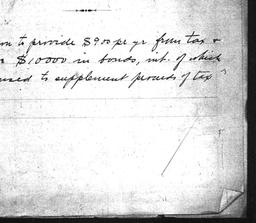 on to provide $900 per yr from tax &
$10000 in bonds, int. of which
used to supplement proceeds of tax